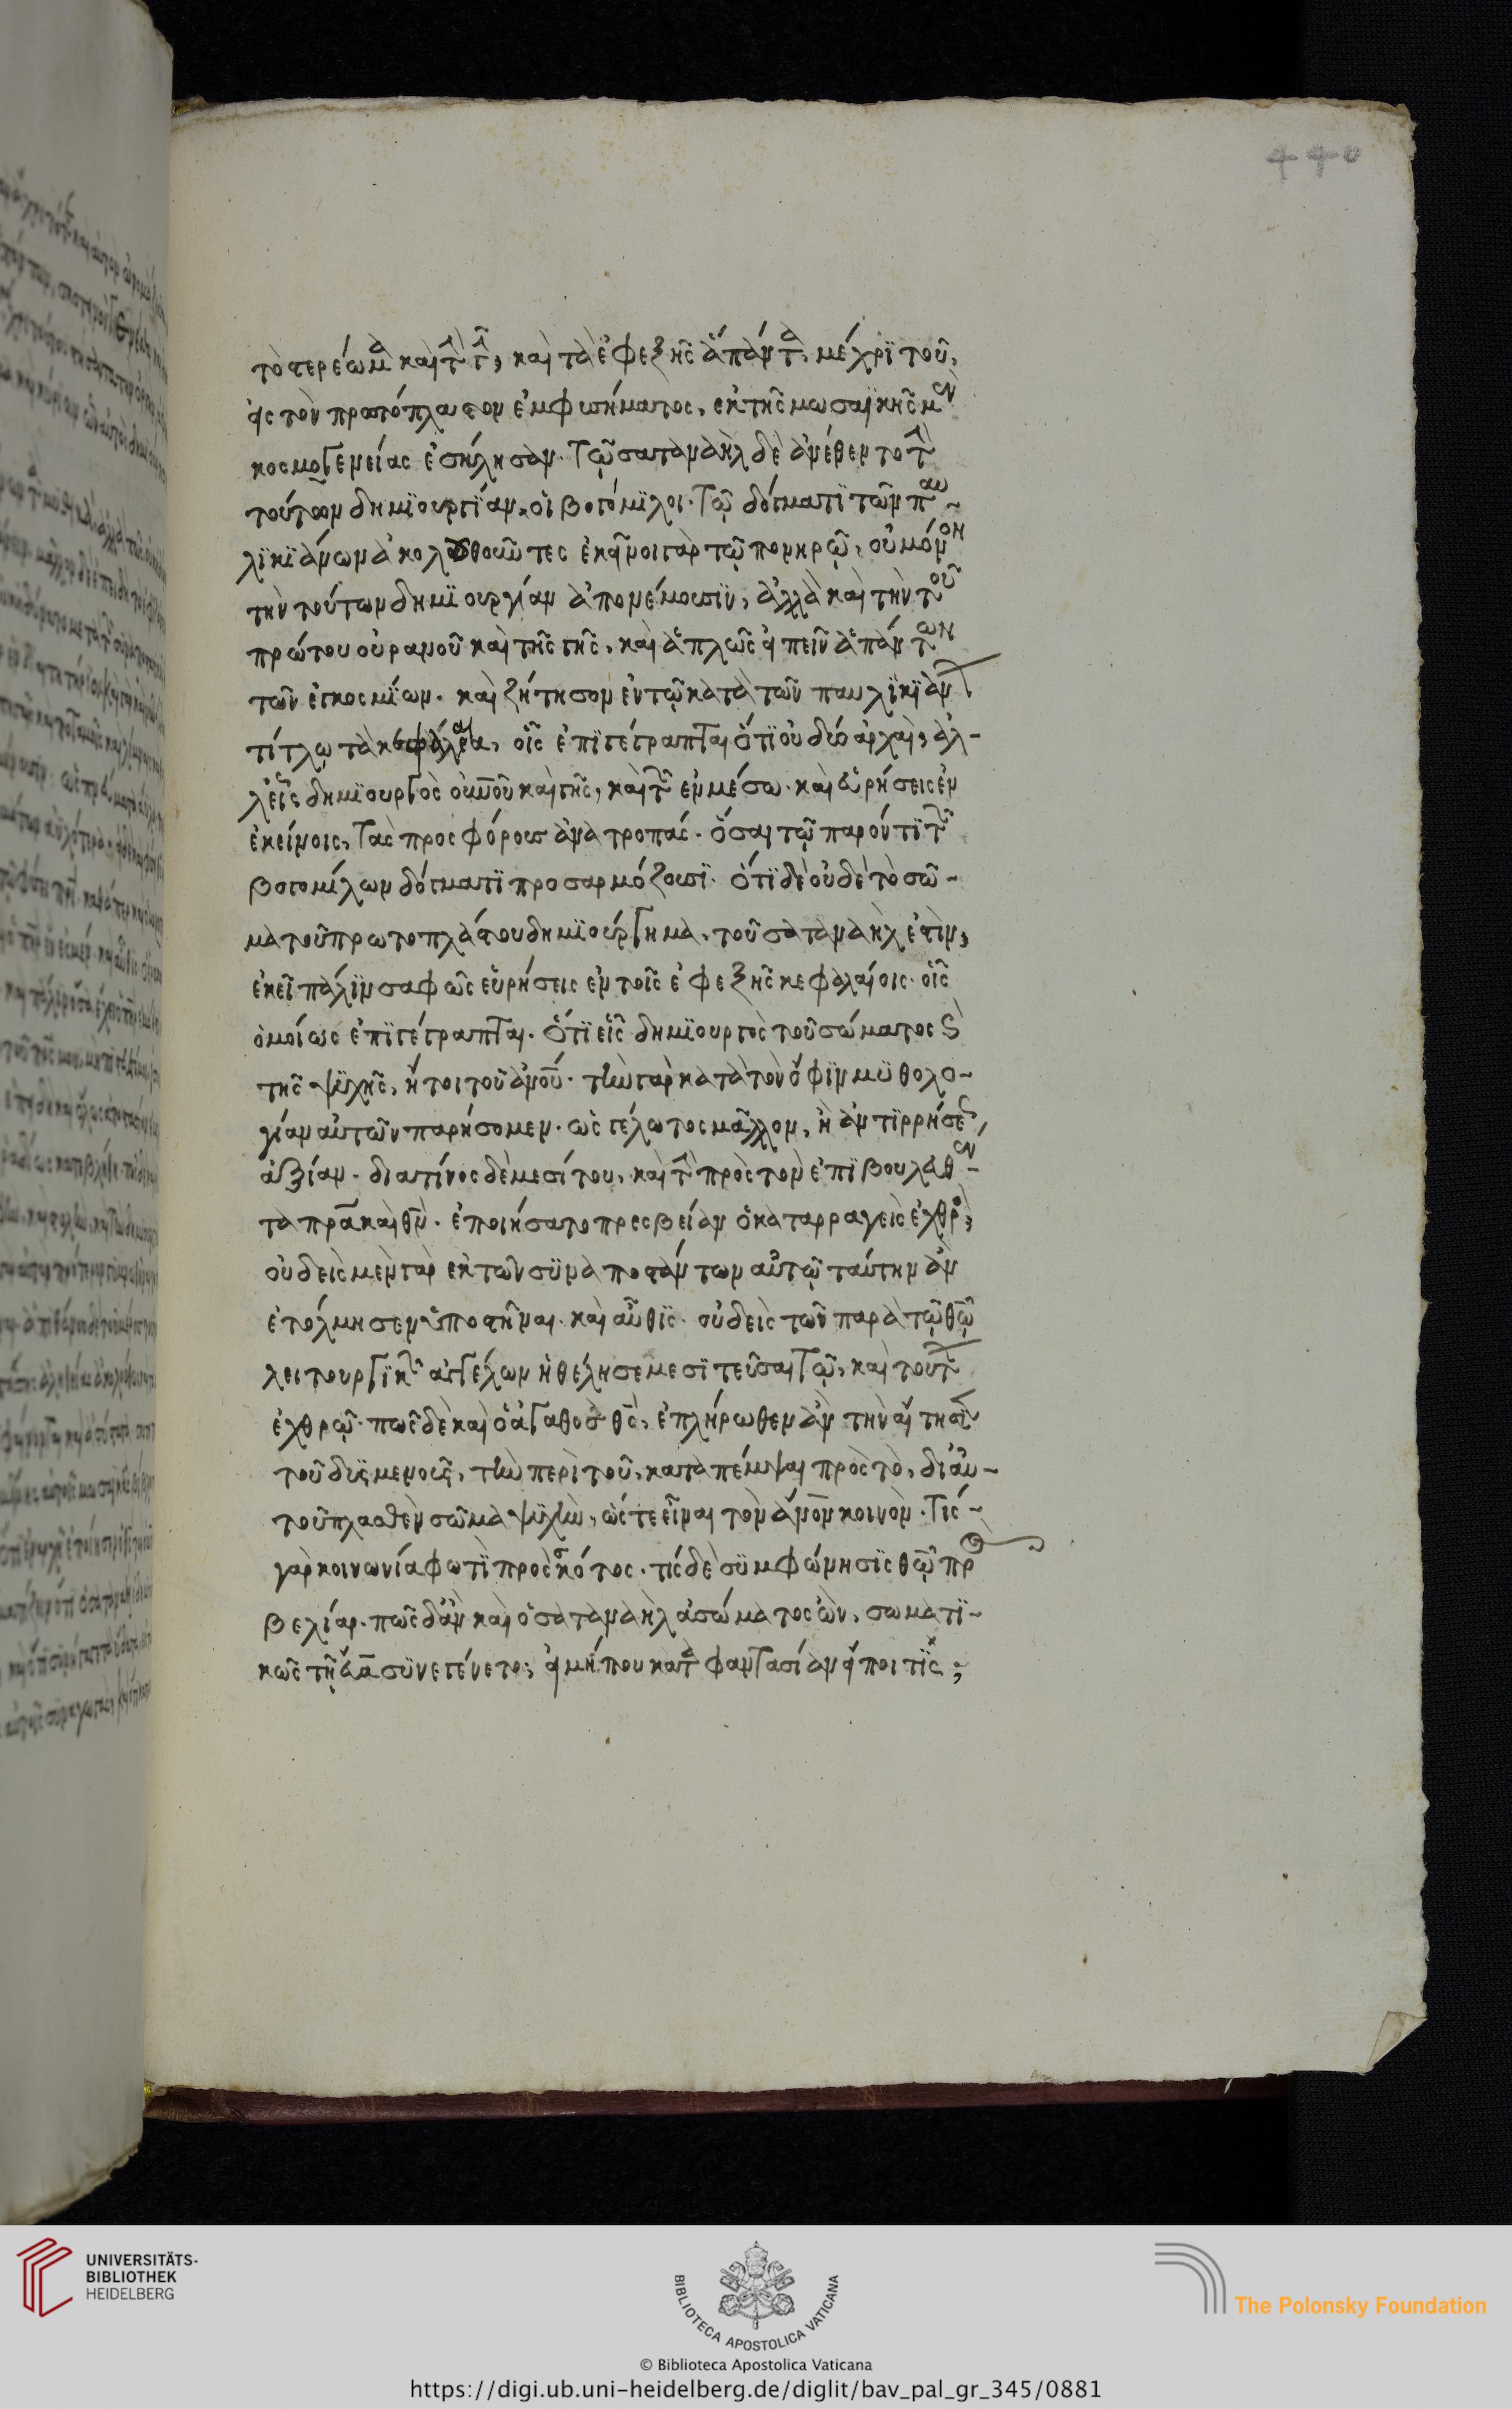 440
το στερέωμα καὶ τὴν γῆν, καὶ τὰ ἐφεξῆς ἅπαντα, μέχρι τοῦ,
εἰς τὸν πρωτόπλαστον ἐμφυσήματος, ἐκ τῆς μωσαϊκῆς μὲν
κοσμογενείας ἐσύλησαν. τῷ σαταναὴλ δὲ ἀνέθεντο τὴν
τούτων δημιουργίαν, οἱ βογόμιλοι. τῷ δόγματι τῶν παυ-
λικιάνων ἀκολουθοῦντες ἐκεῖνοι γὰρ τῷ πονηρῷ, οὐ μόνον
τὴν τούτων δημιουργίαν ἀπονέμουσιν, ἀλλὰ καὶ τὴν τοῦ
πρώτου οὐρανοῦ καὶ τῆς γῆς, καὶ ἁπλῶς εἰπεῖν ἁπάντων
τῶν ἐγκοσμίων. καὶ ζήτησον ἐν τῷ κατὰ τῶν παυλικιάνων
τίτλῳ τὰ κεφάλαια, οἷς ἐπιγέγραπται ὅτι οὐ δύο ἀρχαὶ, ἀλ-
λ' εἷς δημιουργὸς οὐνοῦ καὶ γῆς, καὶ τῶν ἐν μέσω. καὶ εὑρήσεις ἐν
ἐκείνοις, τὰς προσφόρους ἀνατροπάς. ὅσαι τῷ παρόντι τῶν
βογομίλων δόγματι προσαρμόζουσι. ὅτι δὲ οὐδὲ τὸ σῶ-
μα τοῦ πρωτοπλάστου δημιούργημα, τοῦ σαταναὴλ ἐστὶν,
ἐκεῖ πάλιν σαφῶς εὑρήσεις ἐν τοῖς ἐφεξῆς κεφαλαίοις. οἷς
ὁμοίως ἐπιγέγραπται. ὅτι εἷς δημιουργὸς τοῦ σώματος καὶ
τῆς ψυχῆς, ἤτοι τοῦ ἀνου. τὴν γὰρ κατὰ τὸν ὄφιν μυθολο-
γίαν αὐτῶν παρήσομεν. ὡς γέλωτος μᾶλλον, ἢ ἀντιρρήσεως
ἀξίαν. διατίνος δὲ μεσίτου, καὶ τὴν πρὸς τὸν ἐπιβουλευθέν-
τα πρα καὶ θν. ἐποιήσατο πρεσβείαν ὁ καταρραγεὶς ἐχθρὸς,
οὐδεὶς μὲν γὰρ ἐκ τῶν συναποστάντων αὐτῷ ταύτην ἂν
ἐτόλμησεν ὑποστῆναι. καὶ αὖθις. οὐδεὶς τῶν παρὰ τῷ θῷ
λειτουργικῶν ἀγγέλων ἠθέλησε μεσιτεῦσαι τῷ, καὶ τούτων
ἐχθρῷ. πῶς δὲ καὶ ὁ ἀγαθὸς θς, ἐπλήρωθεν ἂν τὴν αἴτησιν
τοῦ δυσμενοῦς, τὴν περὶ τοῦ, καταπέμψαι πρὸς τὸ, δι' αυ-
τοῦ πλασθὲν σῶμα ψυχὴν, ὥστε εἶναι τὸν ἄνον κοινὸν. τίς
γὰρ κοινωνία φωτὶ πρὸς σκότος. τίς δὲ συμφώνησις θῷ πρὸς
βελίαρ. πῶς δ' ἂν καὶ ὁ σαταναὴλ ἀσώματος ὢν, σωματι-
κῶς τῇ εὔα συνεγένετο; εἰ μή που κατὰ φαντασίαν εἴποι τίς;
UNIVERSITÄTS-
BIBLIOTHEK
HEIDELBERG
BIBLIOTECA APOSTOLICA VATICANA
The Polonsky Foundation
© Biblioteca Apostolica Vaticana
https://digi.ub.uni-heidelberg.de/diglit/bav_pal_gr_345/0881